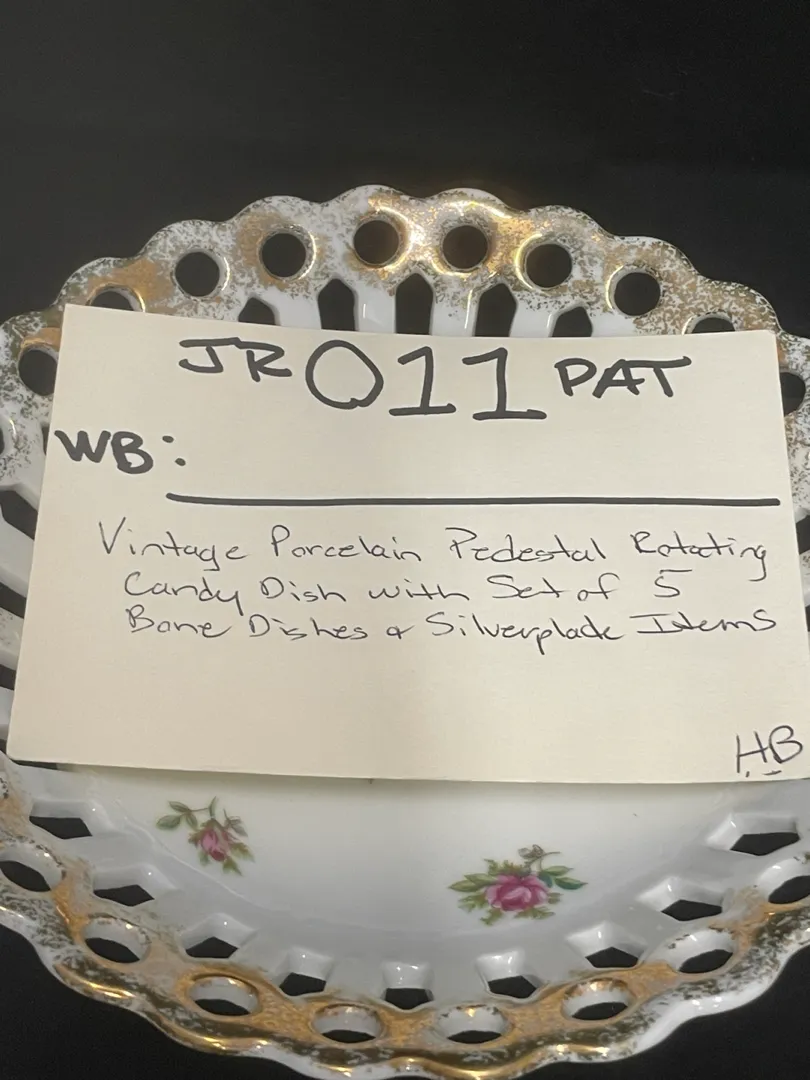 JR 011 PAT
WB:
Vintage Porcelain Pedestal Rotating
Candy Dish with Set of 5
Bone Dishes & Silverplade Items
HB